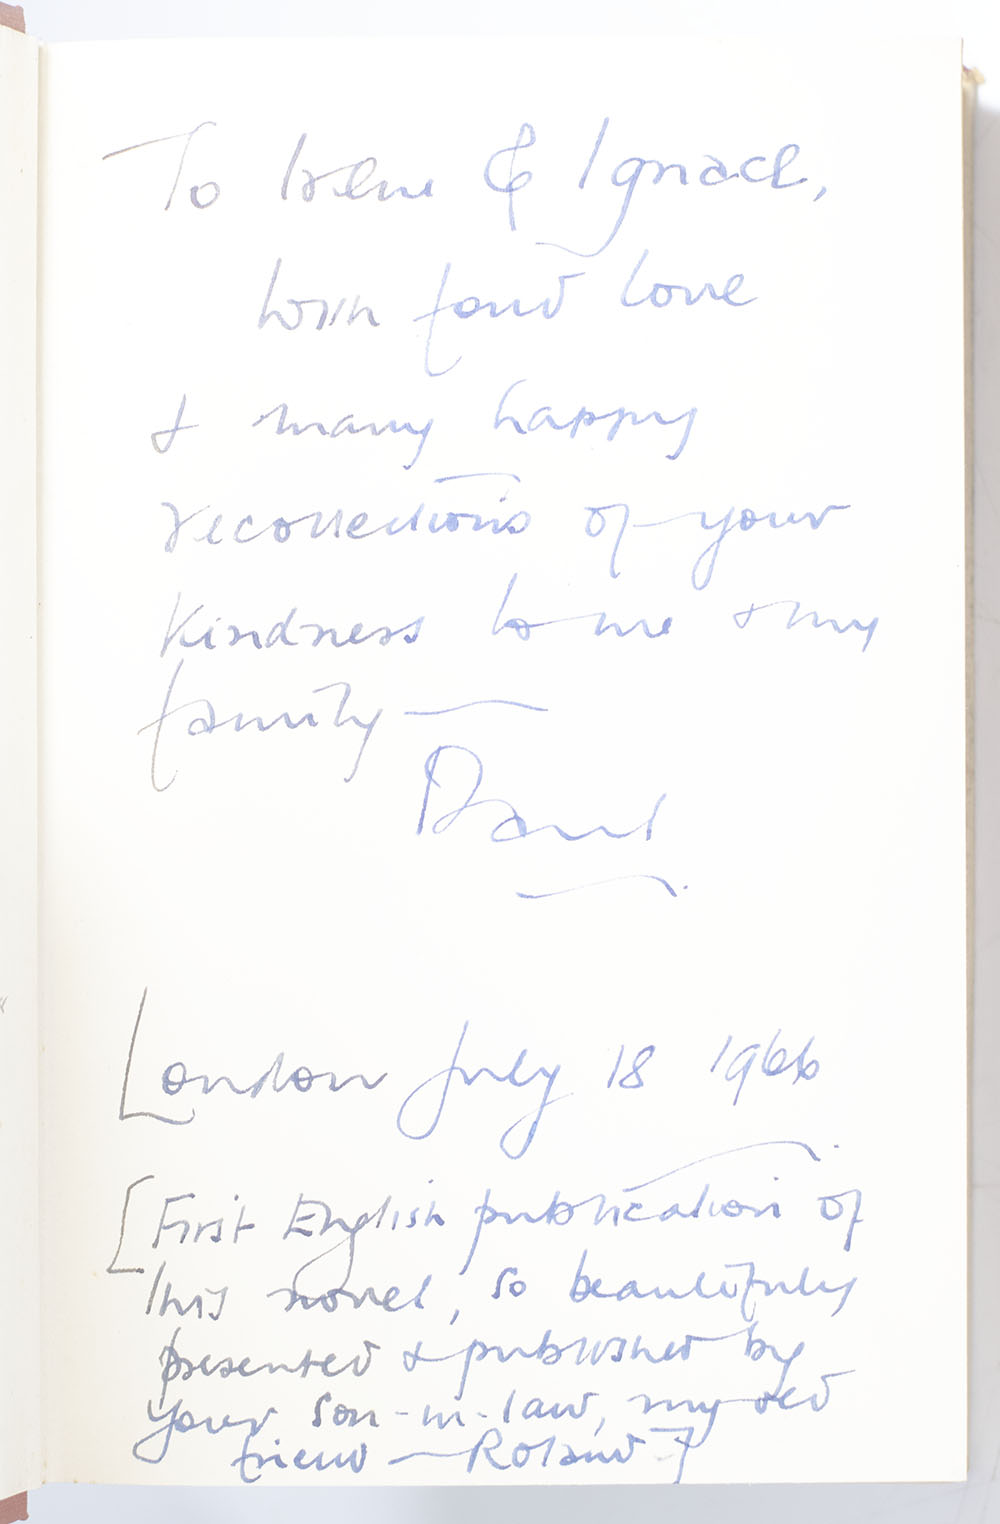 To Irene & Ignace,
with fond love
& many happy
recollections of your
kindness to me & my
family —
London July 18 1966
[First English publication of
this novel, so beautifully
presented & published by
your son-in-law, my old
friend — Roland]